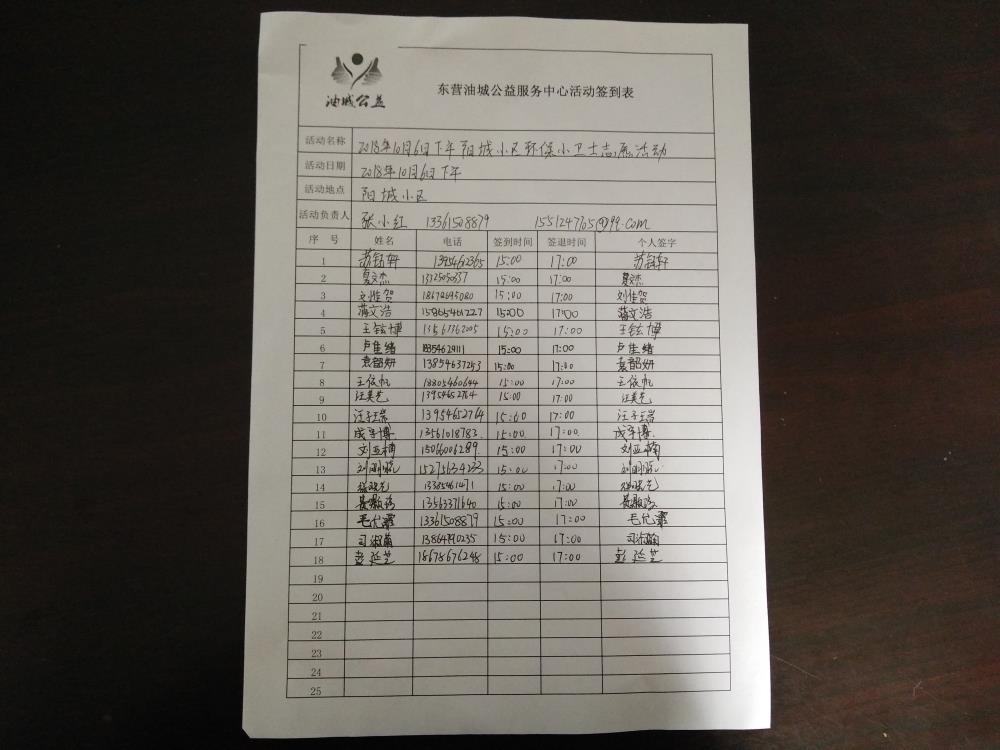 油城公益
东营油城公益服务中心活动签到表
活动名称 2018年10月6日下午阳城小区环保小卫士志愿活动
活动日期 2018年10月6日下午
活动地点 阳城小区
活动负责人 张小红 13361508879 1551247705@qq.com
序号 姓名 电话 签到时间 签退时间 个人签字
1 苏钰轩 15:00 17:00 苏钰轩
2 夏文杰 15:00 17:00 夏文杰
3 刘惟贺 15:00 17:00 刘惟贺
4 蒋文浩 15865461227 15:00 17:00 蒋文浩
5 王铉博 15:00 17:00 王铉博
6 卢佳绪 15:00 17:00 卢佳绪
7 袁韶妍 13854637253 15:00 17:00 袁韶妍
8 王依帆 18805460644 15:00 17:00 王依帆
9 汪美艺 13954652764 15:00 17:00 汪美艺
10 汪子瑞 13954652764 15:00 17:00 汪子瑞
11 成宇博 13561018783 15:00 17:00 成宇博
12 刘亚楠 15066006289 15:00 17:00 刘亚楠
13 15275634233 15:00 17:00
14 13385461471 15:00 17:00
15 13563371640 15:00 17:00
16 毛优霏 13361508879 15:00 17:00 毛优霏
17 15:00 17:00
18 彭延芝 18678676248 15:00 17:00 彭延芝
19
20
21
22
23
24
25